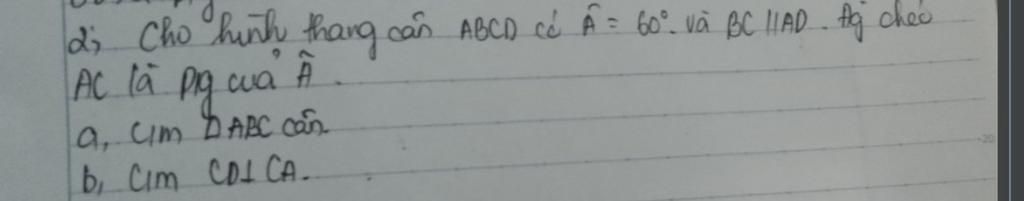 2, Cho hình thang cân ABCD có Â = 60°. và BC // AD. Đg chéo
AC là pg của Â.
a, C/m ∆ABC cân
b, C/m CD⊥CA.